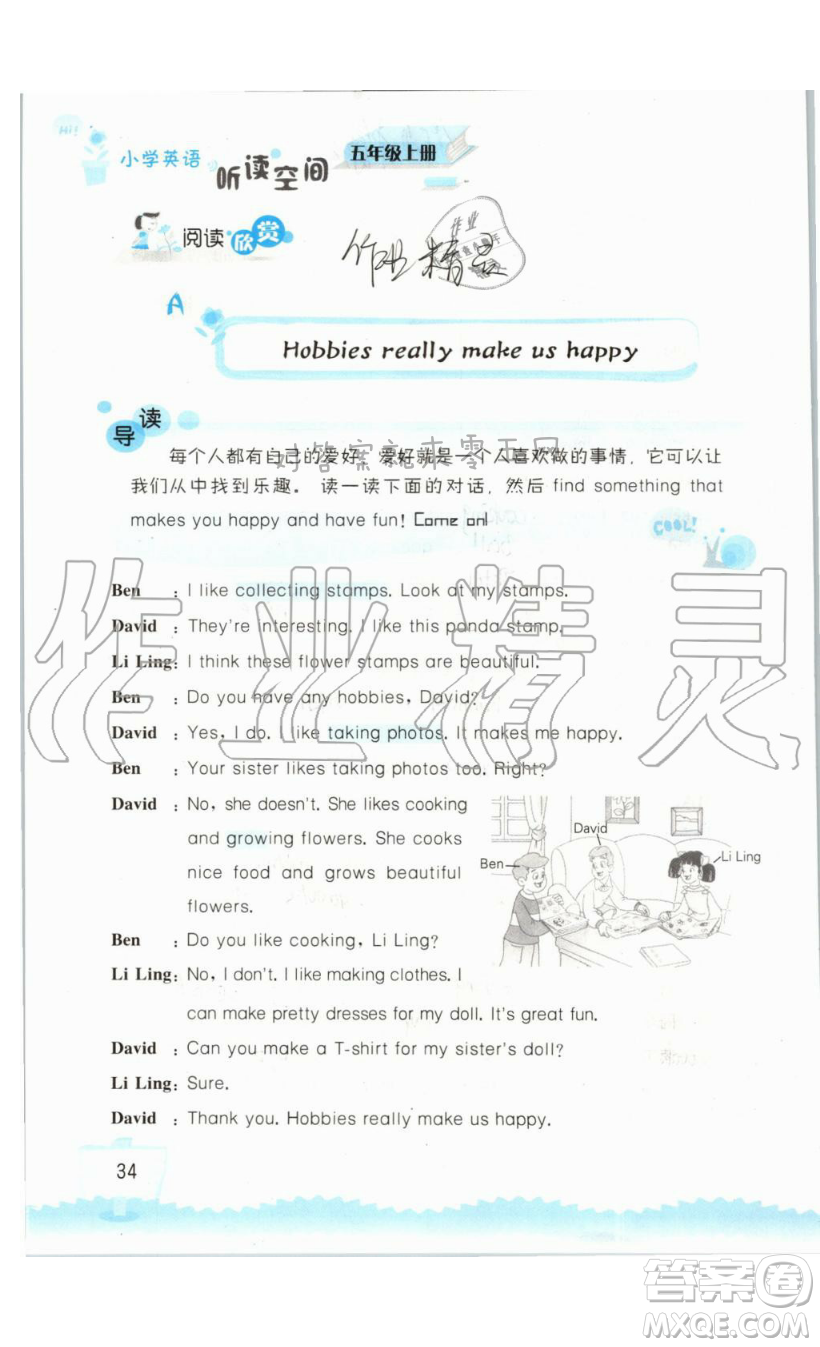 Hi!
小学英语
听读空间
五年级上册
阅读欣赏
作业精灵
作业
A
Hobbies really make us happy
导读
每个人都有自己的爱好，爱好就是一个人喜欢做的事情，它可以让
对答案就来零五网
我们从中找到乐趣。读一读下面的对话，然后 find something that
makes you happy and have fun! Come on!
COOL!
Ben : I like collecting stamps. Look at my stamps.
David : They're interesting. I like this panda stamp.
Li Ling: I think these flower stamps are beautiful.
Ben : Do you have any hobbies, David?
David : Yes, I do. I like taking photos. It makes me happy.
Ben : Your sister likes taking photos too. Right?
David : No, she doesn't. She likes cooking
and growing flowers. She cooks
nice food and grows beautiful
flowers.
David
Ben
Li Ling
Ben : Do you like cooking, Li Ling?
Li Ling: No, I don't. I like making clothes. I
can make pretty dresses for my doll. It's great fun.
David : Can you make a T-shirt for my sister's doll?
Li Ling: Sure.
David : Thank you. Hobbies really make us happy.
作业精灵
34
答案卷
MXQE.COM